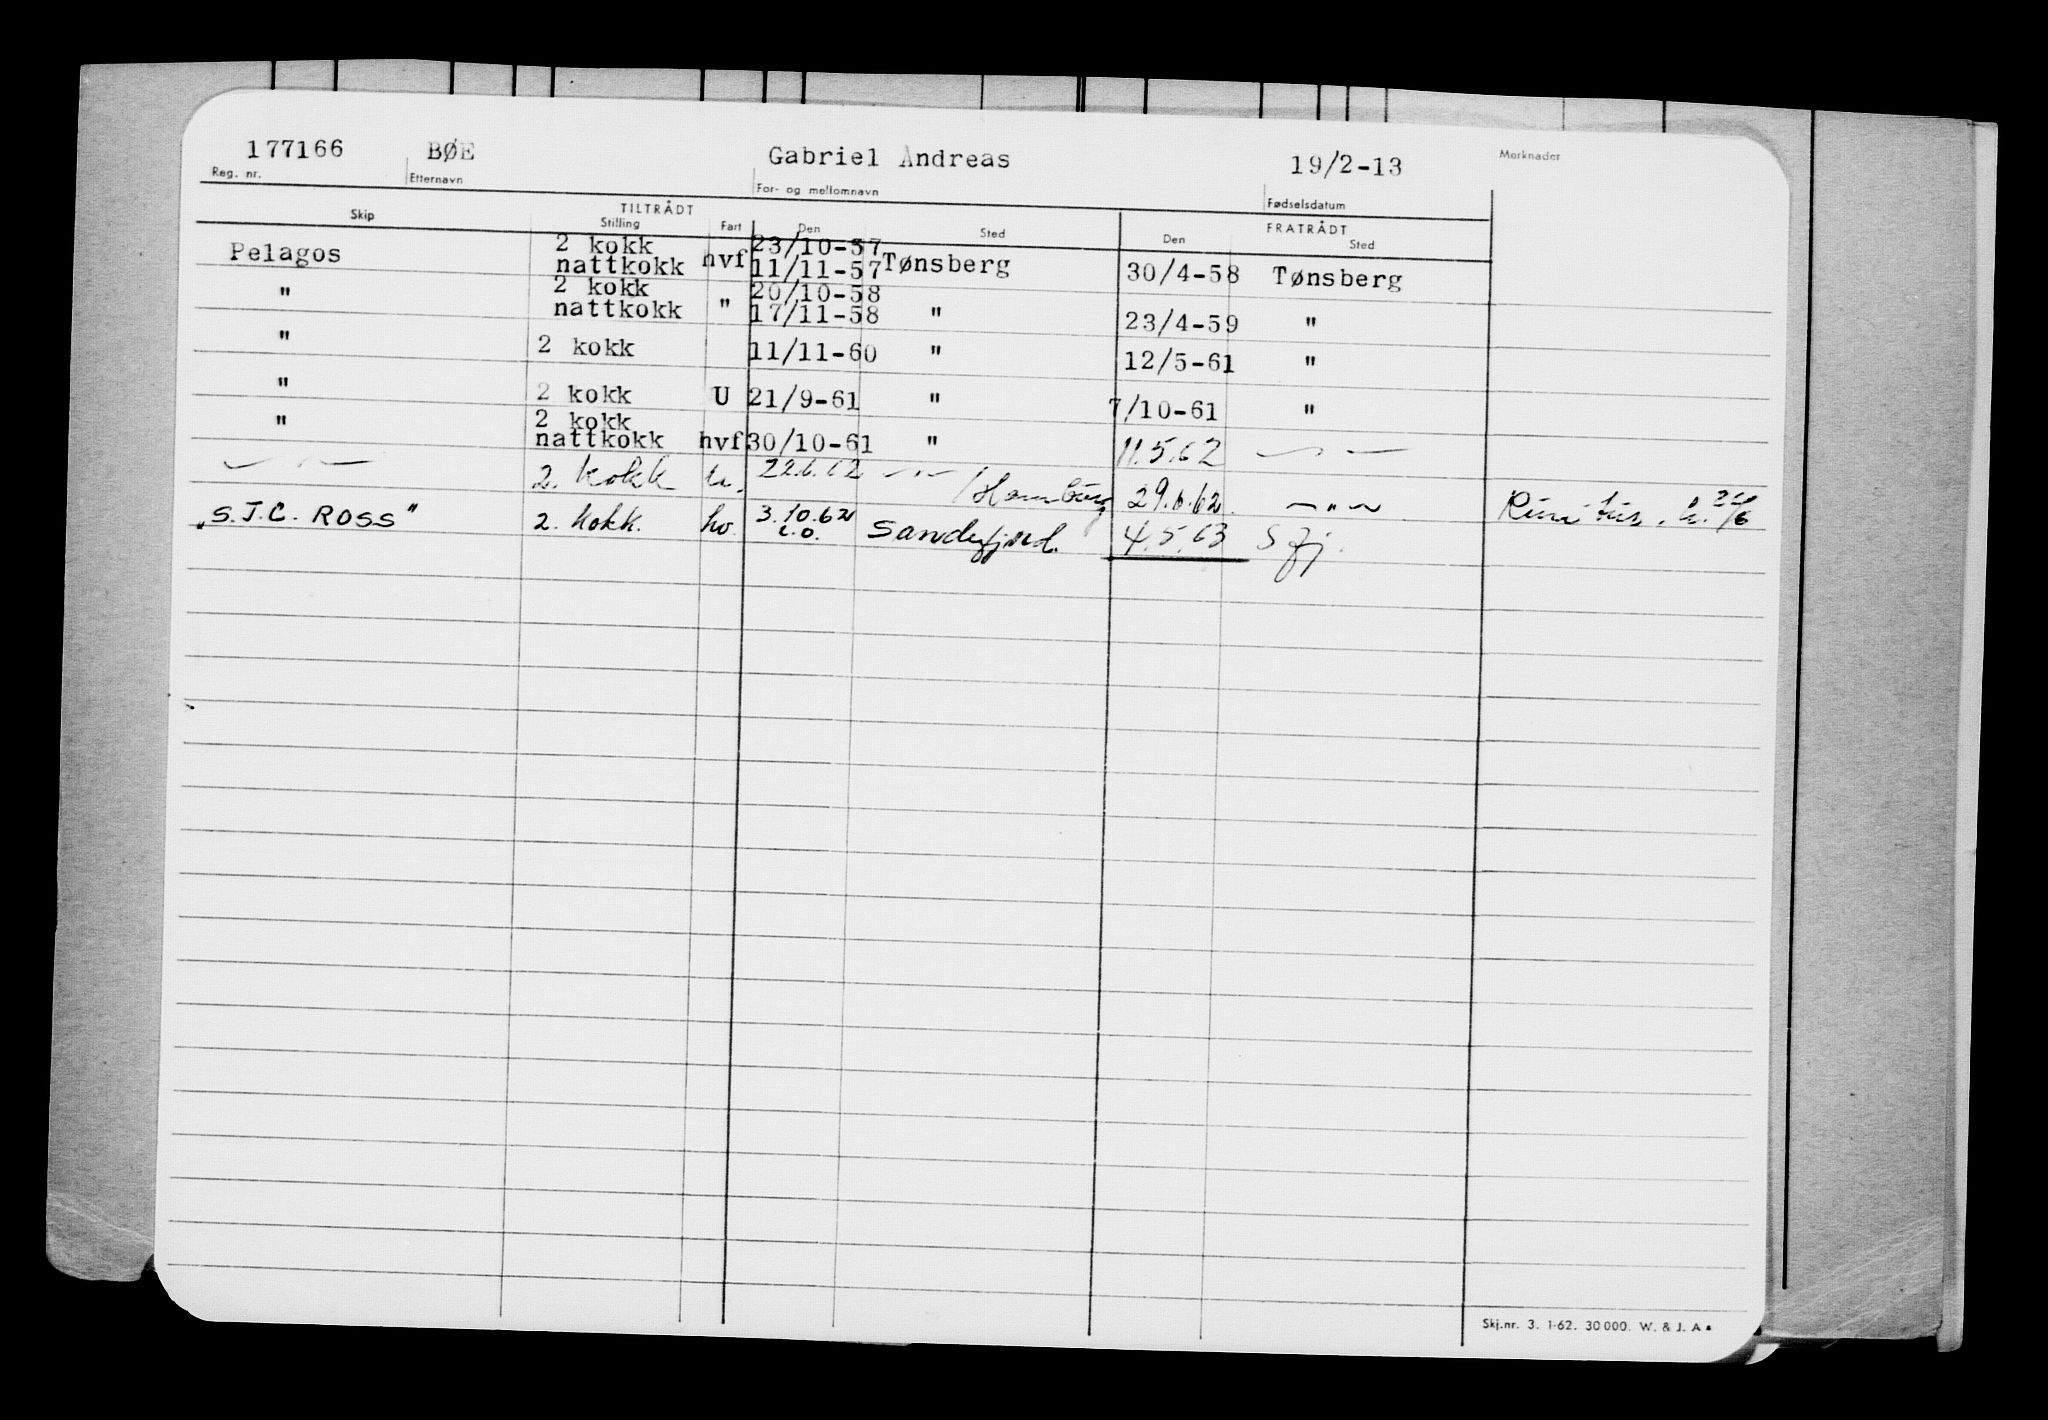 177166 BØE Gabriel Andreas 19/2-13 Merknader
Reg. nr. Etternavn For- og mellomnavn Fødselsdatum
TILTRÅDT FRATRÅDT
Skip Stilling Fart Den Sted Den Sted
2 kokk 23/10-57
Pelagos nattkokk hvf 11/11-57 Tønsberg 30/4-58 Tønsberg
2 kokk 20/10-58
" nattkokk " 17/11-58 " 23/4-59 "
" 2 kokk 11/11-60 " 12/5-61 "
" 2 kokk U 21/9-61 " 7/10-61 "
2 kokk
" nattkokk hvf 30/10-61 " 11.5.62 — " —
— " — 2. kokk u. 22.6.62 — " — /Hamburg 29.6.62. — " — 26/6
"S.J.C. ROSS" 2. kokk. hv. 3.10.62 Sandefjord. 4.5.63 Sfj.
Skj.nr. 3. 1-62. 30 000. W. & J. A s